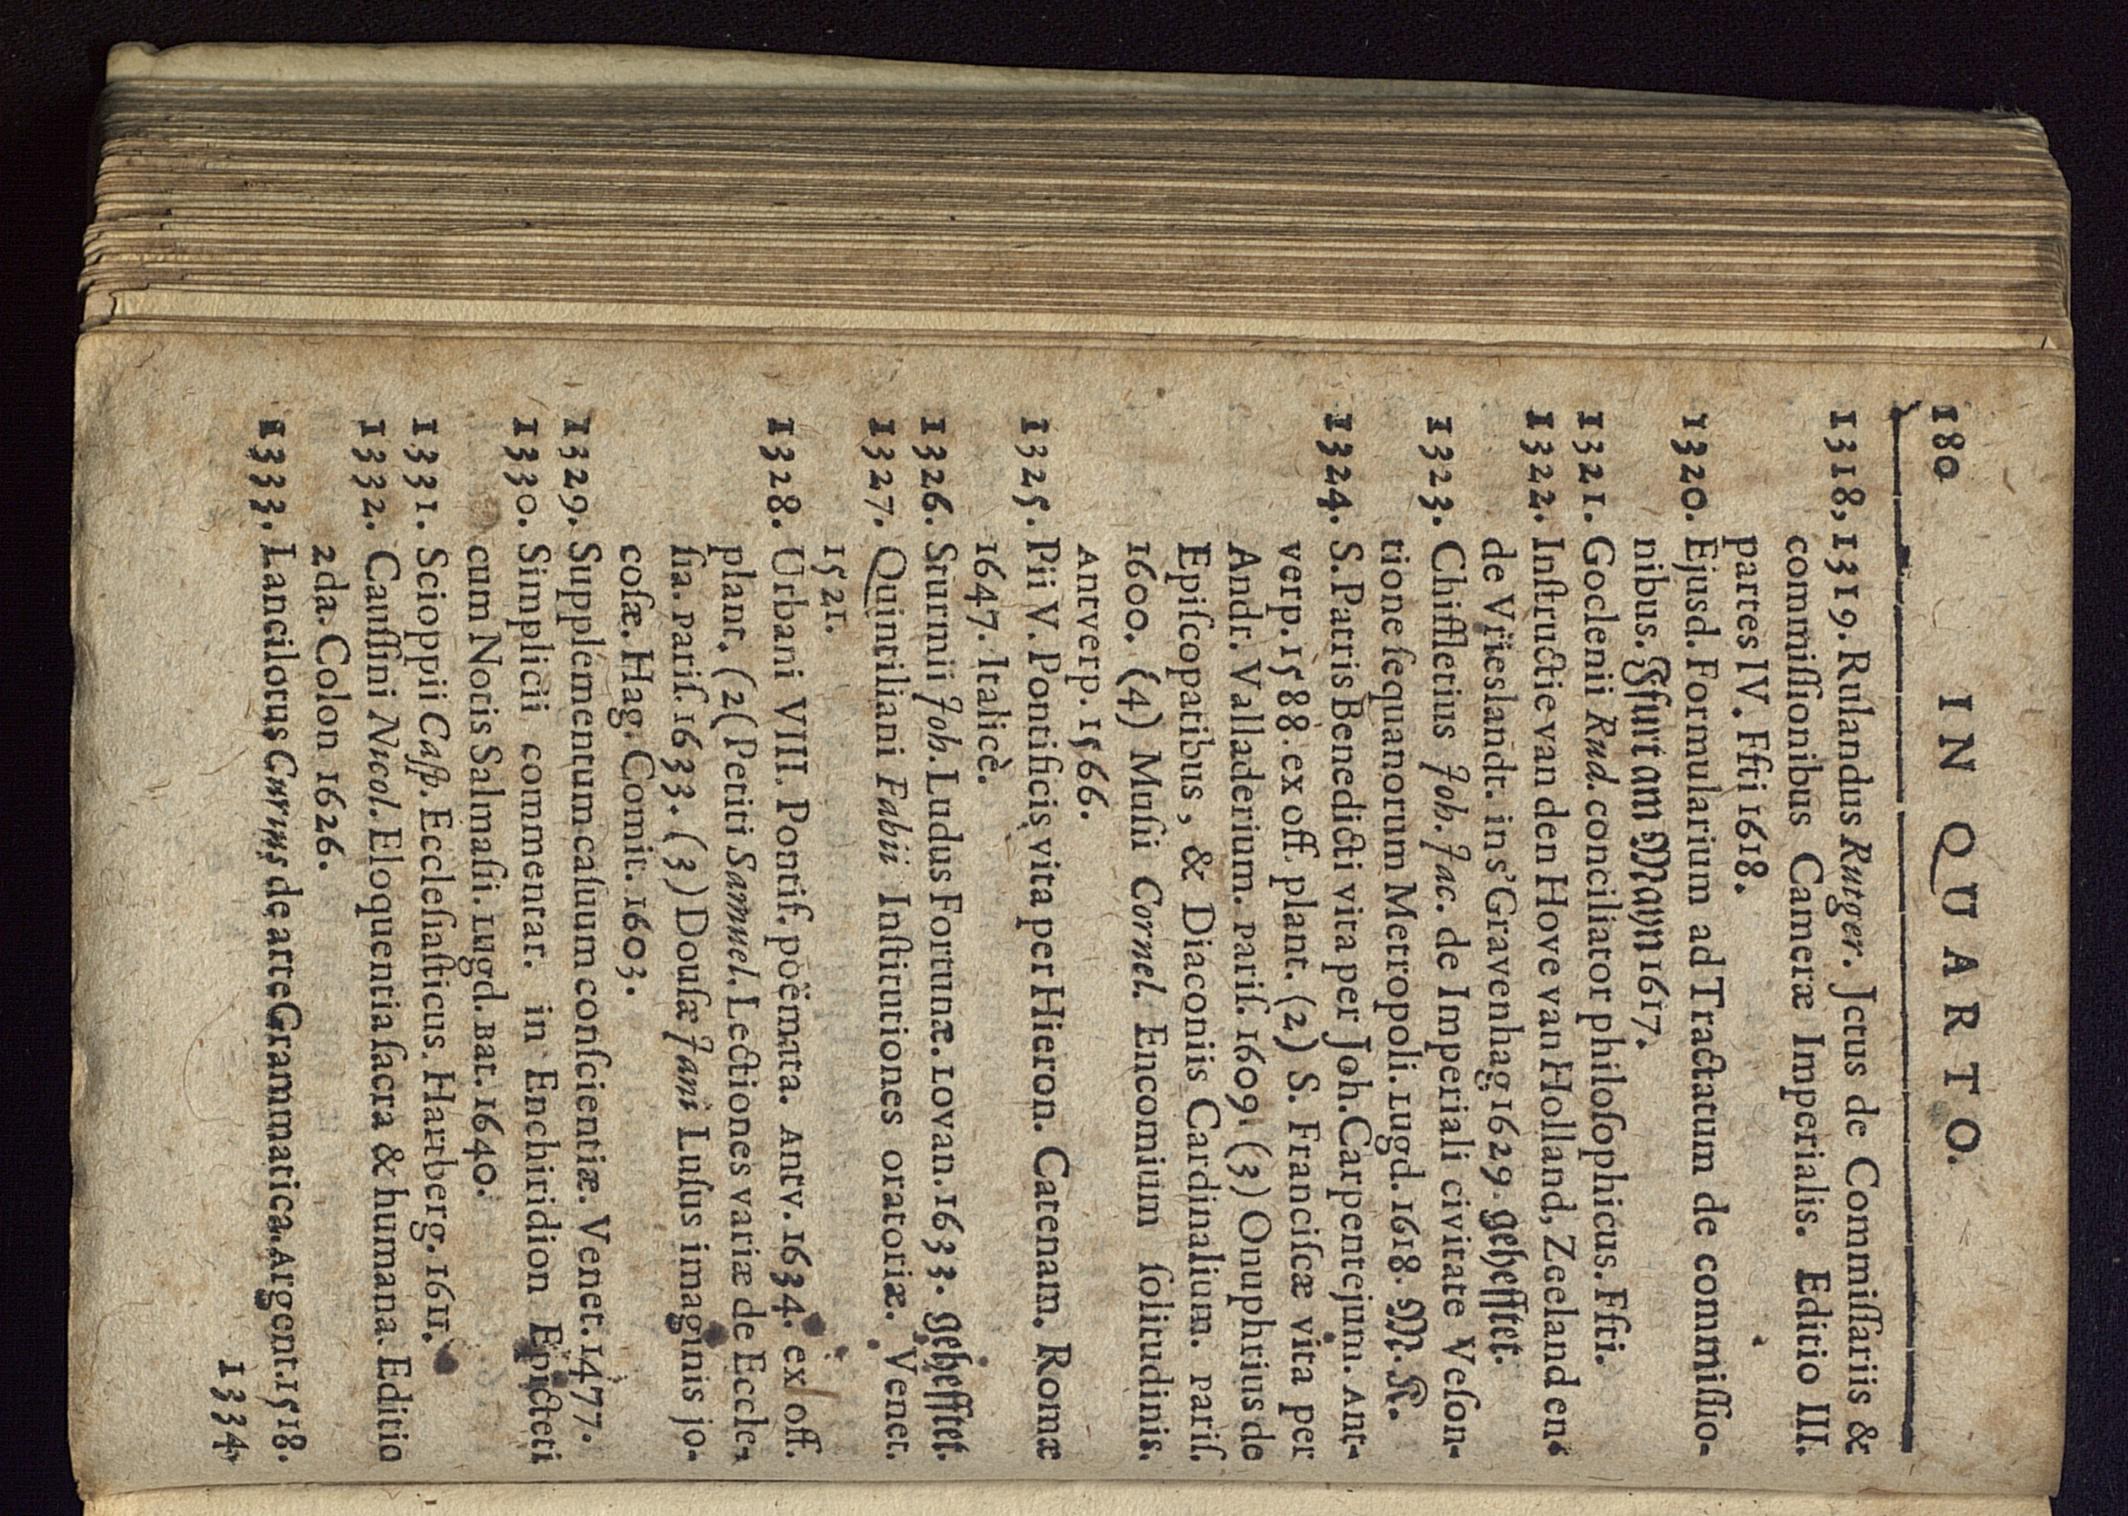 180 IN QUARTO.
1318, 1319. Rulandus Rutger. Jctus de Commiſſariis &
commiſſionibus Cameræ Imperialis. Editio III.
partes IV. Ffti 1618.
1320. Ejusd. Formularium ad Tractatum de commiſſio-
nibus. Ffurt am Mayn 1617.
1321. Goclenii Rud. conciliator philoſophicus. Ffti.
1322. Inſtructie van den Hove van Holland, Zeeland en
de Vrieslandt. in s'Gravenhag 1629. gehefftet.
1323. Chiffletius Joh. Jac. de Imperiali civitate Veſon-
tione ſequanorum Metropoli. Lugd. 1618. M. K.
1324. S. Patris Benedicti vita per Joh. Carpentejum. Ant-
verp. 1588. ex off. plant. (2) S. Franciſcæ vita per
Andr. Valladerium. Pariſ. 1609. (3) Onuphrius de
Epiſcopatibus, & Diaconiis Cardinalium. Pariſ.
1600. (4) Muſii Cornel. Encomium ſolitudinis.
Antverp. 1566.
1325. Pii V. Pontificis vita per Hieron. Catenam. Romæ
1647. Italicè.
1326. Sturmii Joh. Ludus Fortunæ. Lovan. 1633. gehefftet.
1327. Quintiliani Fabii Inſtitutiones oratoriæ. Venet.
1521.
1328. Urbani VIII. Pontif. poëmata. Antv. 1634. ex off.
plant. (2( Petiti Samuel. Lectiones variæ de Eccle-
ſia. Pariſ. 1633. (3) Douſæ Jani Luſus imaginis jo-
coſæ. Hag. Comit. 1603.
1329. Supplementum caſuum conſcientiæ. Venet. 1477.
1330. Simplicii commentar. in Enchiridion Epicteti
cum Notis Salmaſii. Lugd. Bat. 1640.
1331. Scioppii Caſp. Eccleſiaſticus. Hartberg. 1611.
1332. Cauſſini Nicol. Eloquentia ſacra & humana. Editio
2da. Colon 1626.
1333. Lancilotus Curius de arte Grammatica. Argent. 1518.
1334